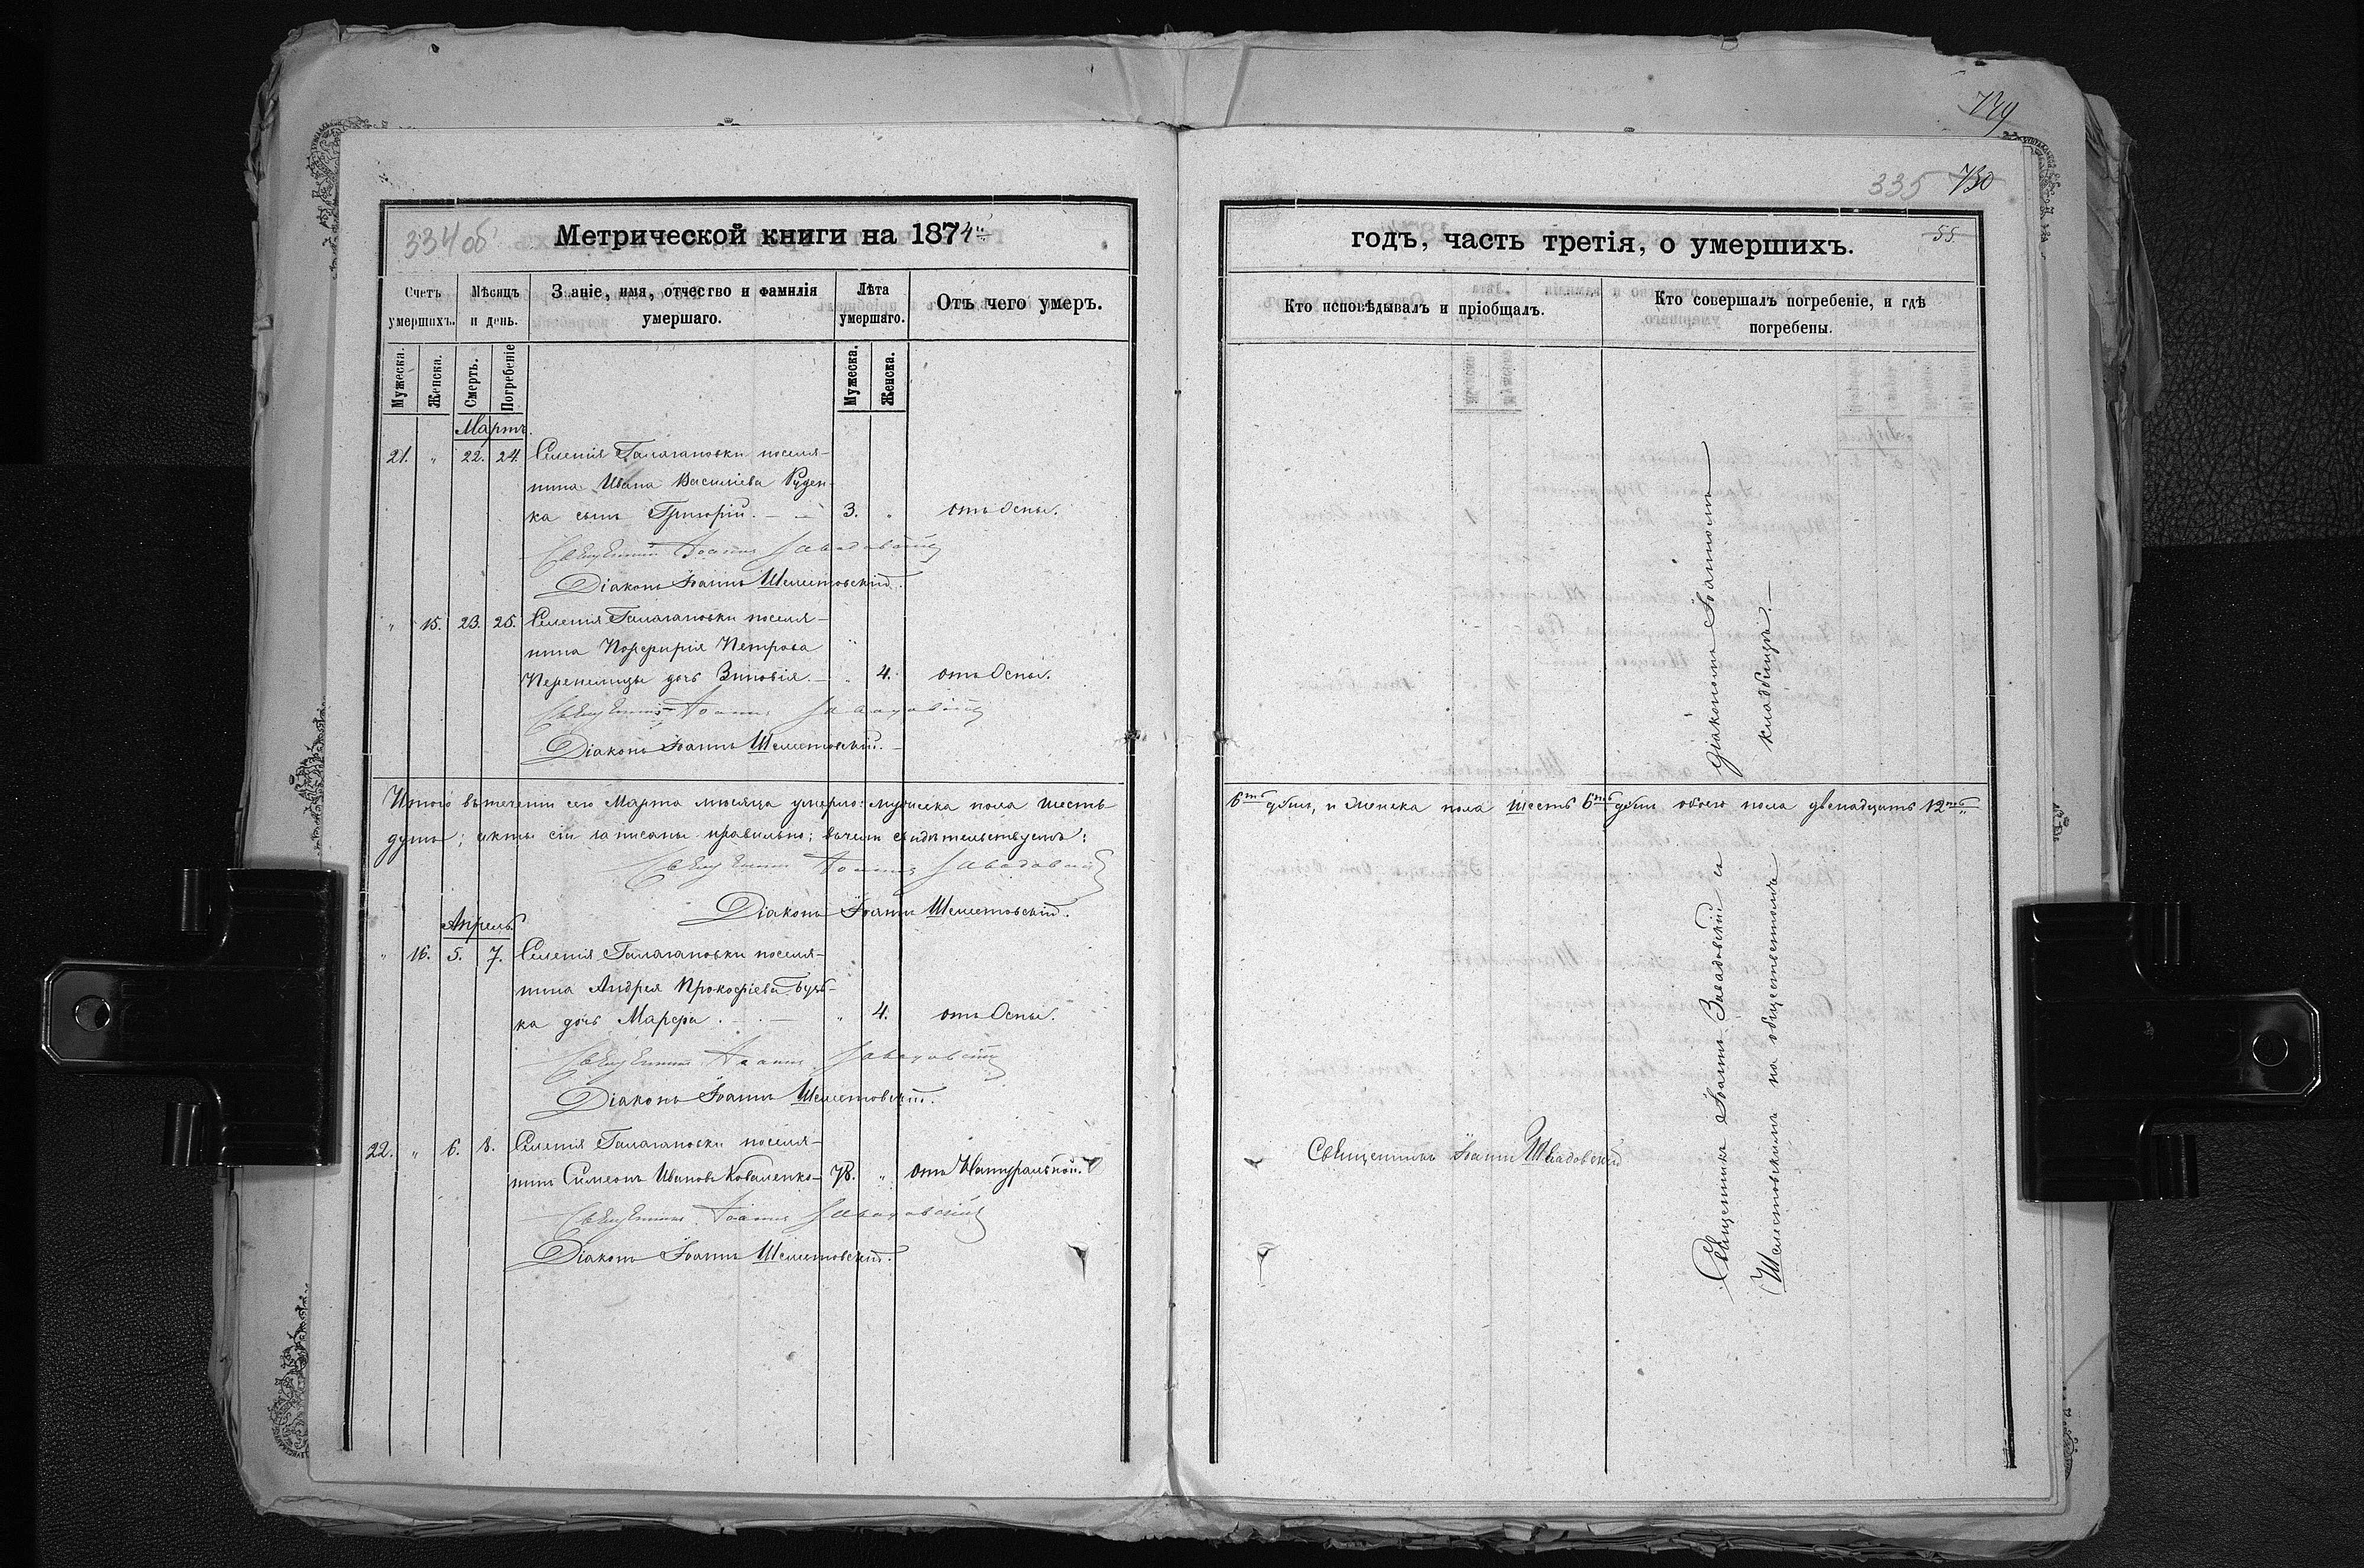 739
335 730
334 об
Метрической книги на 1874
годъ, часть третія, о умершихъ.
55
Счетъ умершихъ.
Мѣсяцъ и день.
З аніе, имя, отчество и фамилія умершаго.
Лѣта умершаго.
Отъ чего умеръ.
Кто исповѣдывалъ и пріобщалъ.
Кто совершалъ погребеніе, и гдѣ погребены.
Мужеска. Женска. Смерть. Погребеніе Мужеска. Женска.
Мартъ.
21. " 22. 24. Селенія Галагановки поселя-
нина Ивана Василіева Руден-
ка сынъ Григорій. 3. " отъ Оспы.
Священникъ Іоаннъ Завадовскій
Діаконъ Іоаннъ Шелестовскій.
" 15. 23. 25. Селенія Галагановки поселя-
нина Порфирія Петрова "
Перепелицы дочь Зиновія. " 4. отъ Оспы.
Священникъ Іоаннъ Завадовскій
Діаконъ Іоаннъ Шелестовскій.
Итого втеченіи сего Марта мѣсяца умерло: мужеска пола шесть 6ть душъ, и женска пола шесть 6ть душъ обоего пола двенадцать 12ть
душъ; акты сіи записаны правильно; вчемъ свидѣтельствуемъ:
Священникъ Іоаннъ Завадовскій
Діаконъ Іоаннъ Шелестовскій.
Апрель
" 16. 5. 7. Селенія Галагановки поселя-
нина Андрея Прокофіева
ка дочь Марфа. " 4. отъ Оспы.
Священникъ Іоаннъ Завадовскій
Діаконъ Іоаннъ Шелестовскій.
22. " 6. 8. Селенія Галагановки поселя-
нинъ Симеонъ Ивановъ Коваленко 78. " отъ Натуральной.
Священникъ Іоаннъ Завадовскій
Діаконъ Іоаннъ Шелестовскій.
Священникъ Іоаннъ
Священникъ Іоаннъ Завадовскій съ діакономъ Іоанномъ
Шелестовскимъ на общественномъ кладбищѣ.